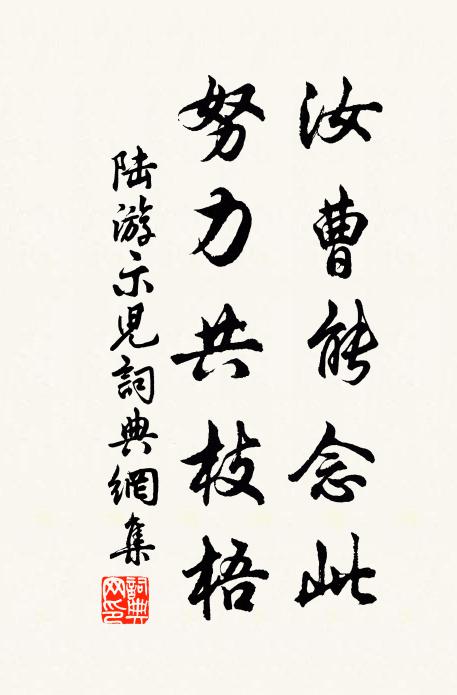 汝曹能念此
努力共枝梧
陆游示児詞典網集
詞典网印